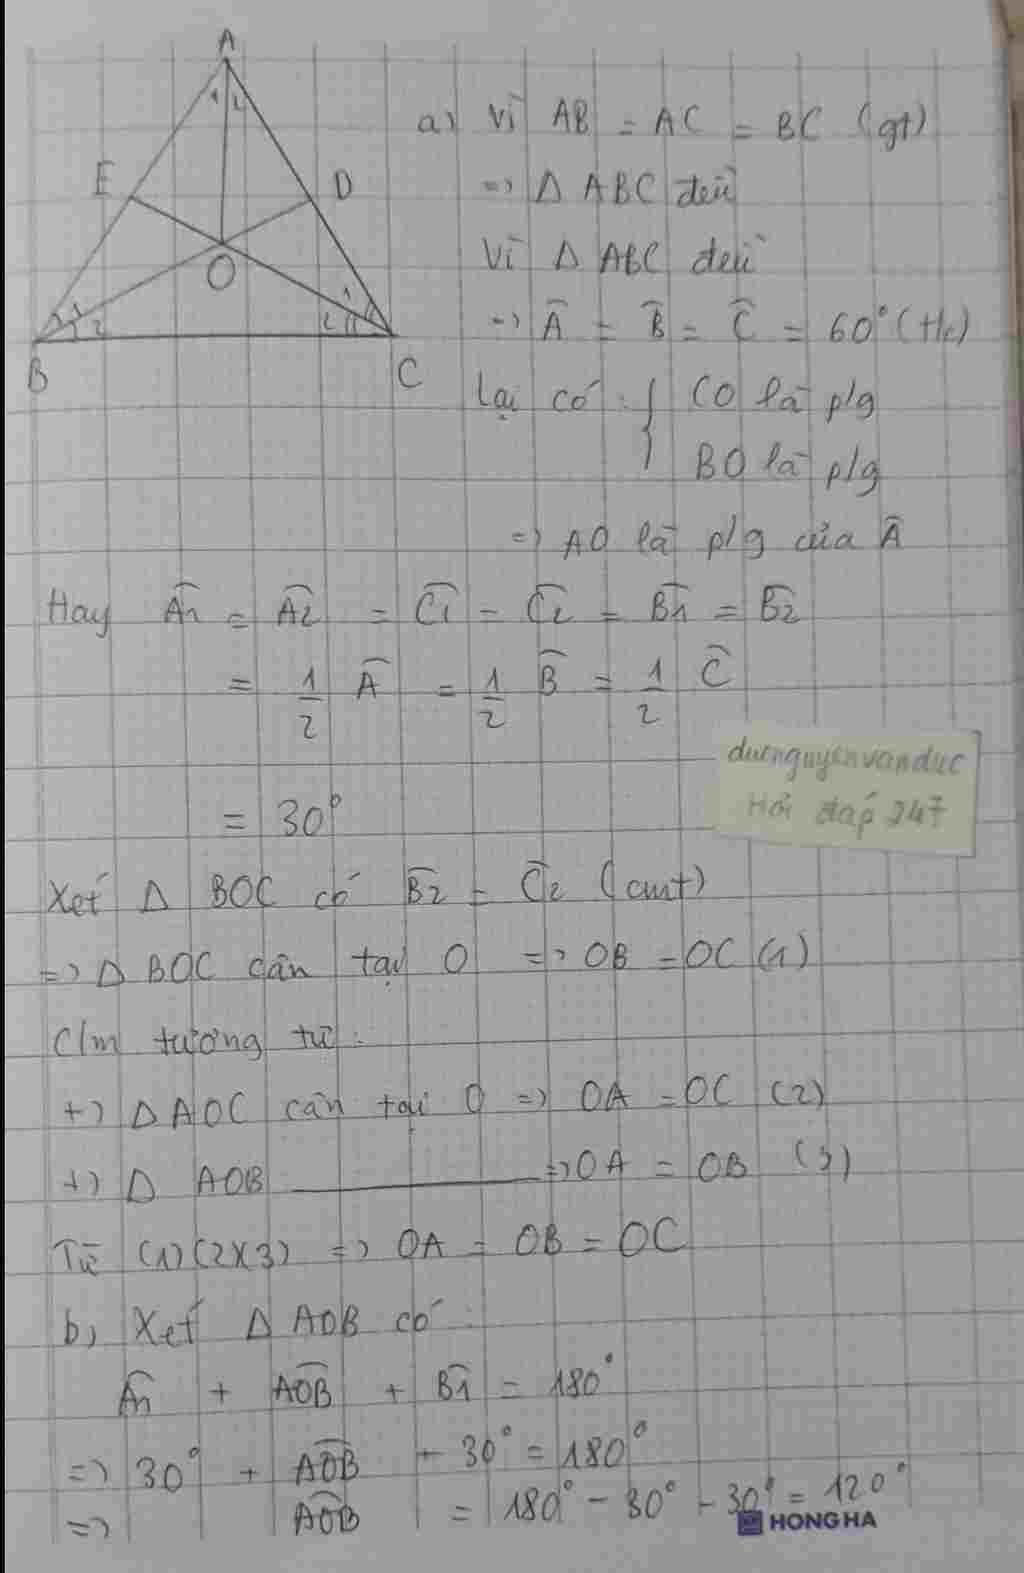 A
1 2
E
D
O
1
2
1
2
B
C
a) Vì AB = AC = BC (gt)
=> Δ ABC đều
Vì Δ ABC đều
=> Â = B̂ = Ĉ = 60° (t/c)
Lại có : { CO là p/g
BO là p/g
=> AO là p/g của Â
Hay Â1 = Â2 = Ĉ1 = Ĉ2 = B̂1 = B̂2
= 1/2 Â = 1/2 B̂ = 1/2 Ĉ
= 30°
ducnguyenvanduc
Hỏi đáp 247
Xét Δ BOC có B̂2 = Ĉ2 (cmt)
=> Δ BOC cân tại O => OB = OC (1)
C/m tương tự :
+) Δ AOC cân tại O => OA = OC (2)
+) Δ AOB ———— => OA = OB (3)
Từ (1)(2)(3) => OA = OB = OC
b) Xét Δ AOB có
Â1 + AÔB + B̂1 = 180°
=> 30° + AÔB + 30° = 180°
=> AÔB = 180° - 30° - 30° = 120°
HONG HA